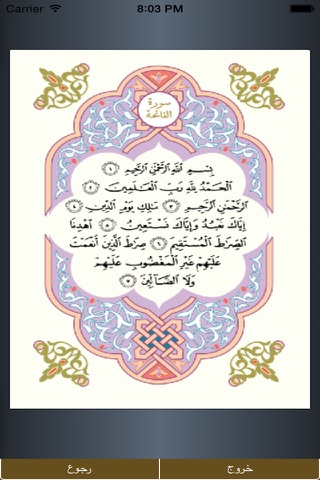 Carrier 8:03 PM
سورة
الفاتحة
بِسْمِ ٱللَّهِ ٱلرَّحْمَٰنِ ٱلرَّحِيمِ ١
ٱلْحَمْدُ لِلَّهِ رَبِّ ٱلْعَٰلَمِينَ ٢
ٱلرَّحْمَٰنِ ٱلرَّحِيمِ ٣ مَٰلِكِ يَوْمِ ٱلدِّينِ ٤
إِيَّاكَ نَعْبُدُ وَإِيَّاكَ نَسْتَعِينُ ٥ ٱهْدِنَا
ٱلصِّرَٰطَ ٱلْمُسْتَقِيمَ ٦ صِرَٰطَ ٱلَّذِينَ أَنْعَمْتَ
عَلَيْهِمْ غَيْرِ ٱلْمَغْضُوبِ عَلَيْهِمْ
وَلَا ٱلضَّآلِّينَ ٧
خروج
رجوع